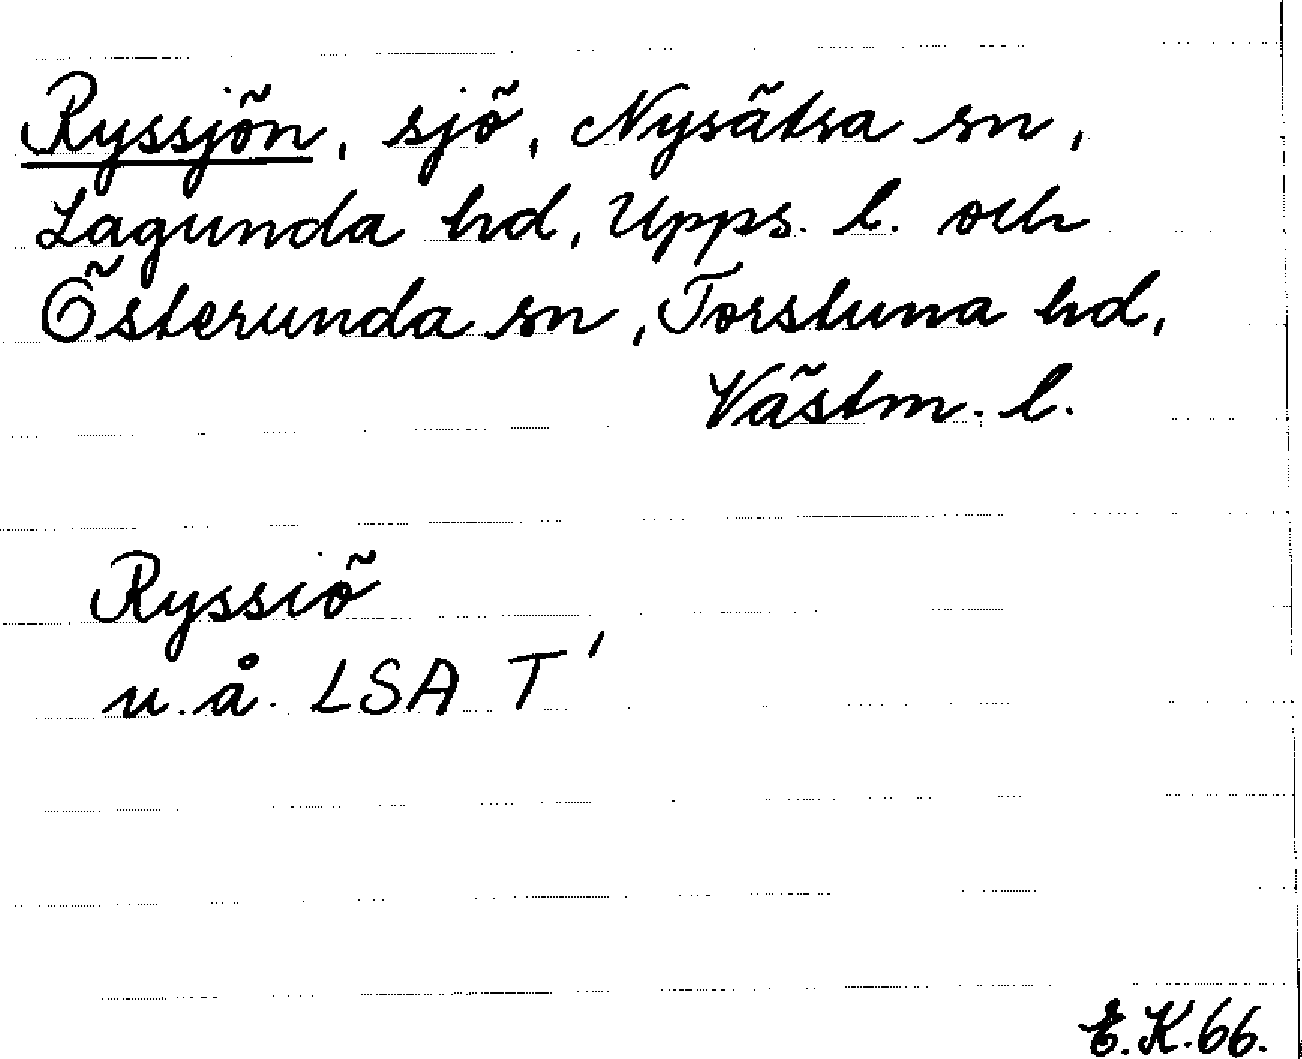 Ryssjön, sjö, Nysätra sn,
Lagunda hd, Upps. l. och
Österunda sn, Torstuna hd,
Västm. l.
Ryssiö
u.å. LSA T'
E.K.66.